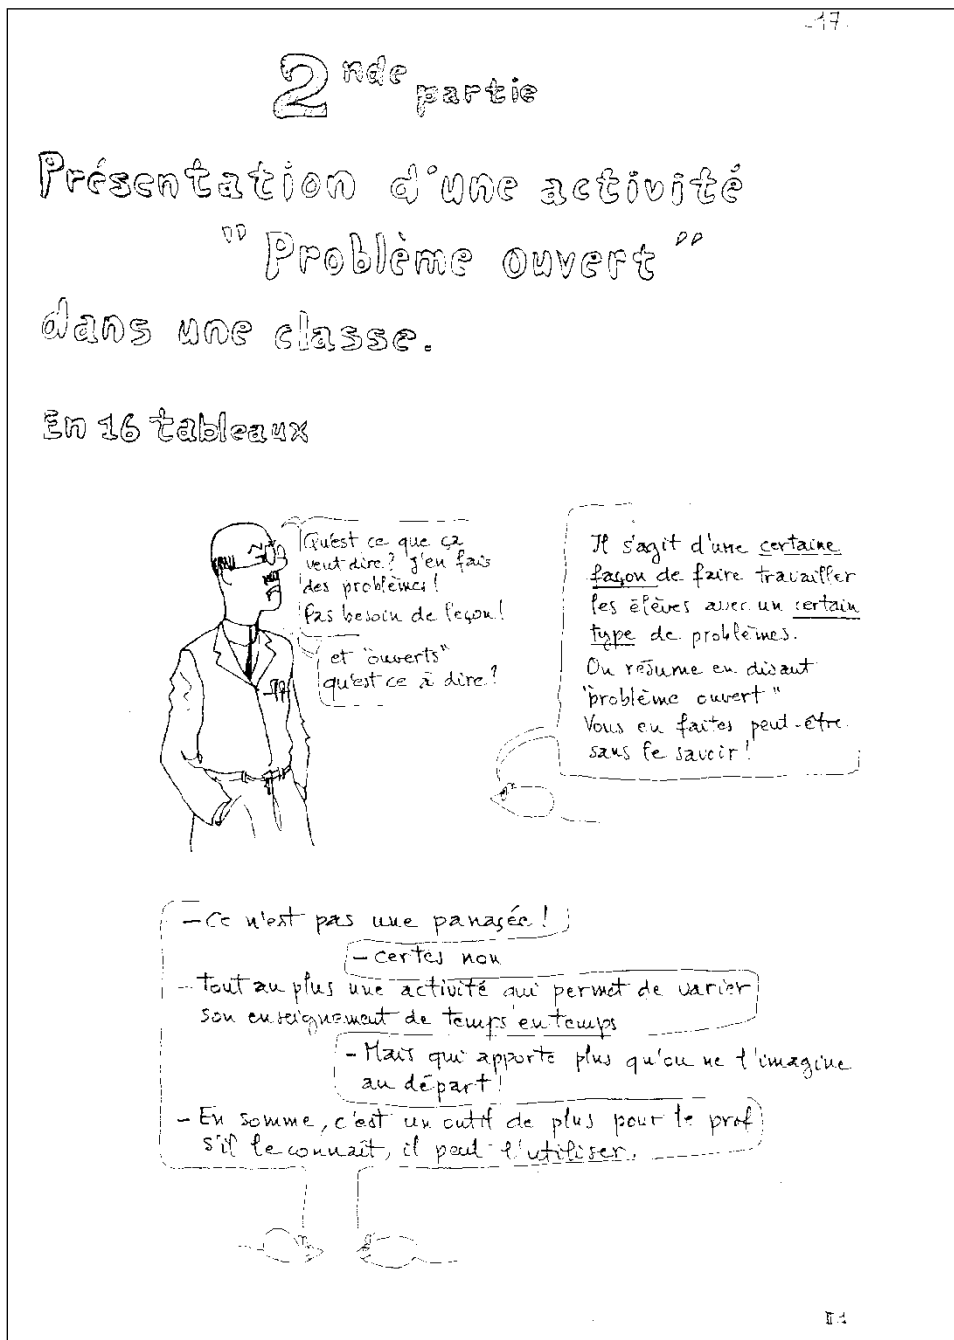 -17-
2nde partie
Présentation d'une activité
"Problème ouvert"
dans une classe.
En 16 tableaux
Qu'est ce que ça
veut dire? J'en fais
des problèmes!
Pas besoin de leçon!
et "ouverts"
qu'est ce à dire?
Il s'agit d'une certaine
façon de faire travailler
les élèves avec un certain
type de problèmes.
On résume en disant
"problème ouvert"
Vous en faites peut-être
sans le savoir!
- Ce n'est pas une panacée!
- certes non
- Tout au plus une activité qui permet de varier
son enseignement de temps en temps
- Mais qui apporte plus qu'on ne l'imagine
au départ!
- En somme, c'est un outil de plus pour le prof
s'il le connaît, il peut l'utiliser.
II 1